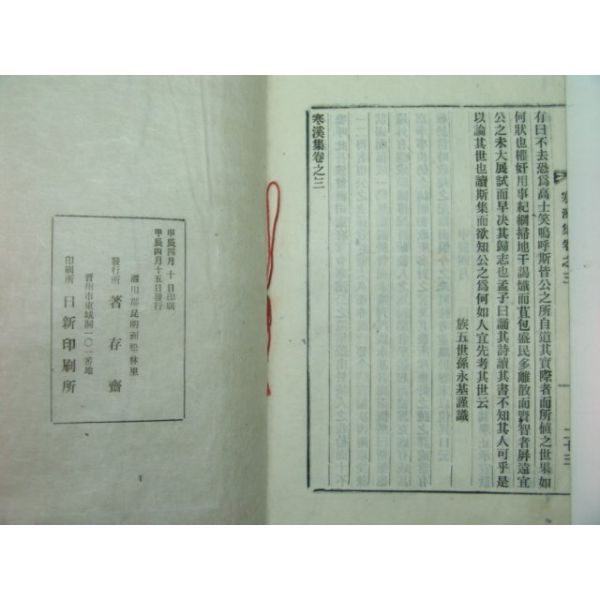 有曰不去恐爲高士笑嗚呼斯皆公之所自道其實際者而所値之世果如
何狀也權奸用事紀綱掃地干謁熾而苞包盛民多離散而賢智者屛遠宜
公之未大展試而早決其歸志也孟子曰誦其詩讀其書不知其人可乎是
以論其世也讀斯集而欲知公之爲何如人宜先考其世云
族五世孫永基謹識
寒溪集卷之三
寒溪集卷之三
二十三
甲辰四月十日印刷
甲辰四月十五日發行
郡昆明面松林里
發行所 著存齋
晋州市東城洞一〇一番地
印刷所 日新印刷所